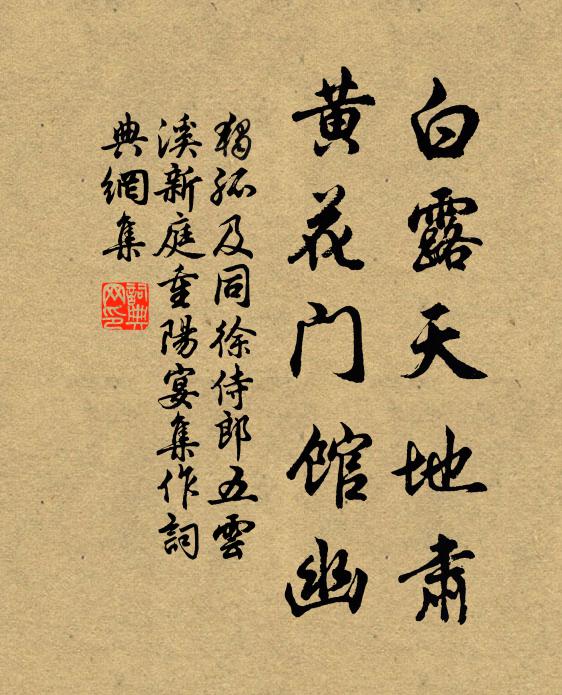 白露天地肃
黄花门馆幽
獨孤及同徐侍郎五雲
溪新庭重陽宴集作詞
典網集
詞典
网印